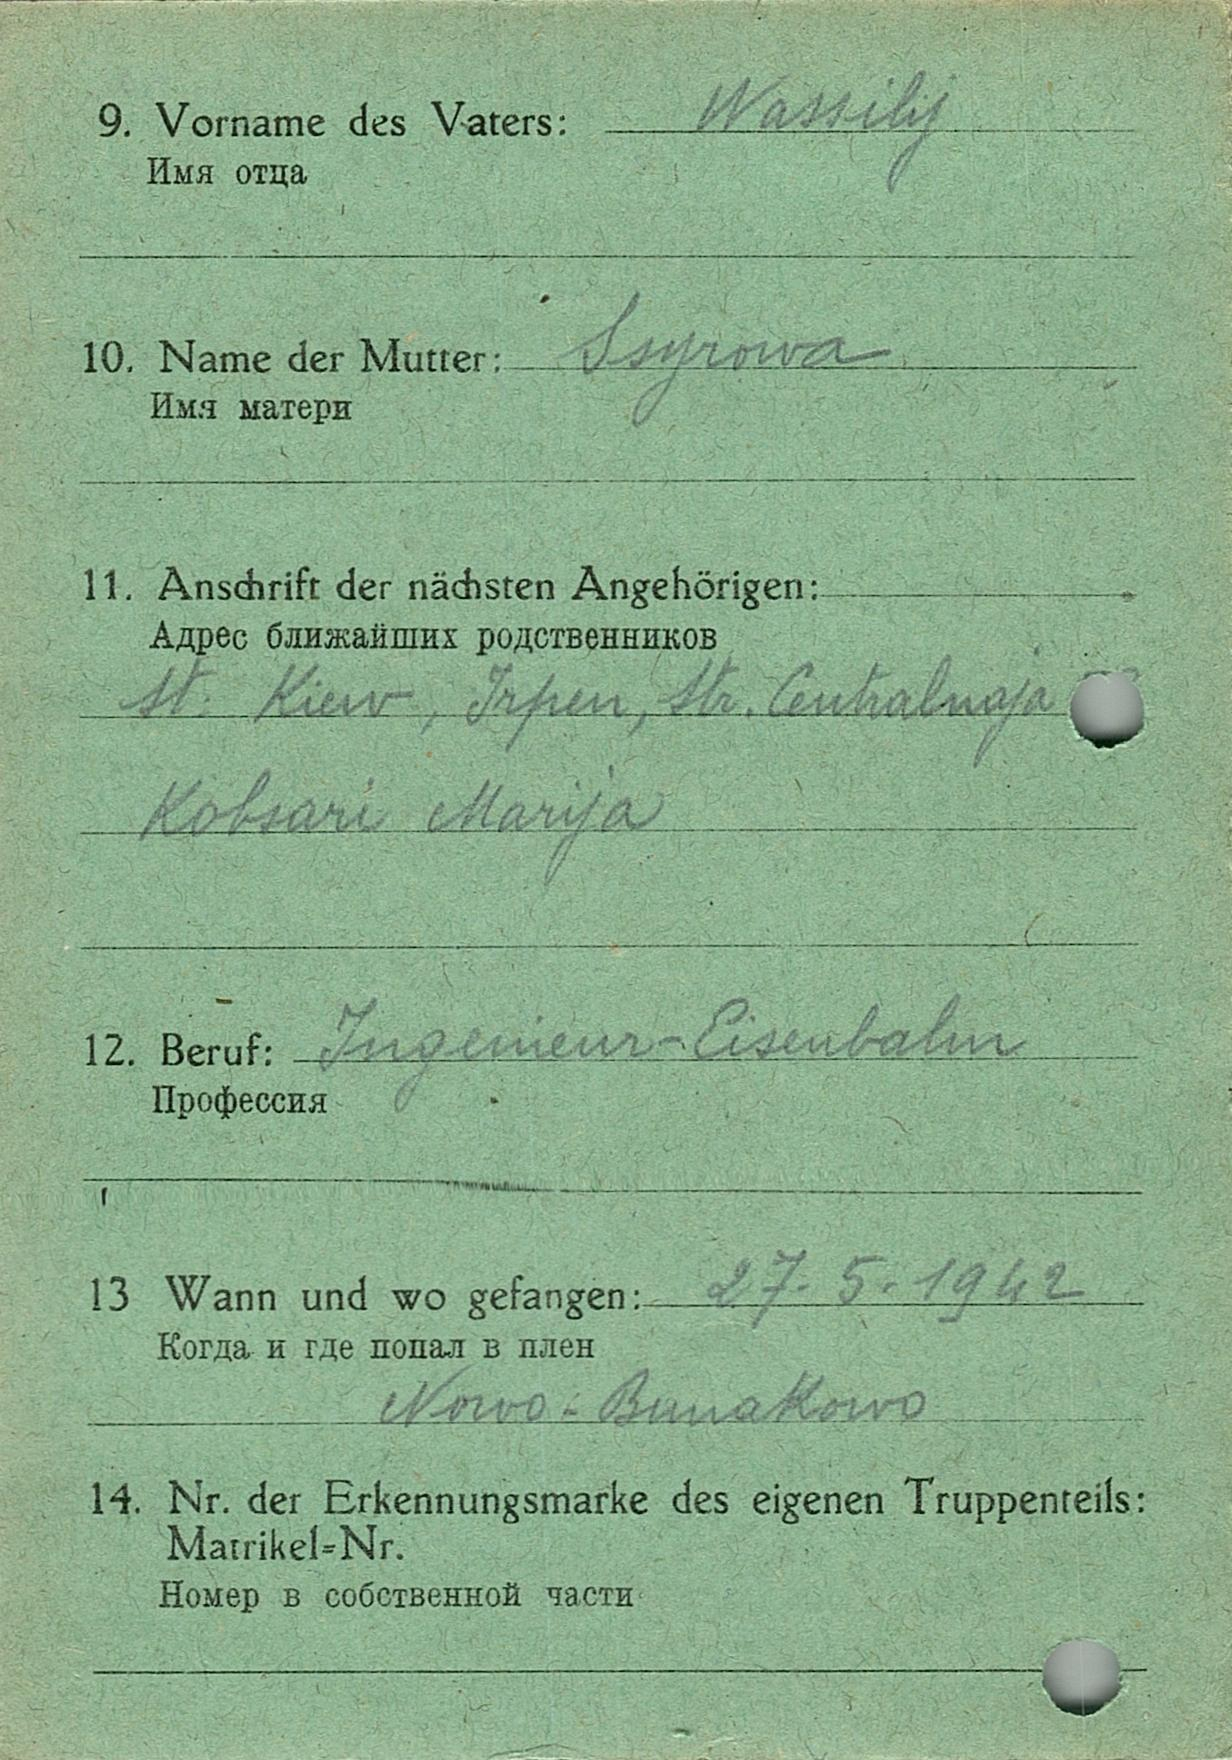 9. Vorname des Vaters: Wassilij
Имя отца
10. Name der Mutter: Ssyrowa
Имя матери
11. Anschrift der nächsten Angehörigen:
Адрес ближайших родственников
St. Kiew, Irpen, Str. Centralnaja
Kobsari Marija
12. Beruf: Ingenieur-Eisenbahn
Профессия
13 Wann und wo gefangen: 27.5.1942
Когда и где попал в плен
Nowo-Bunakowo
14. Nr. der Erkennungsmarke des eigenen Truppenteils:
Matrikel=Nr.
Номер в собственной части